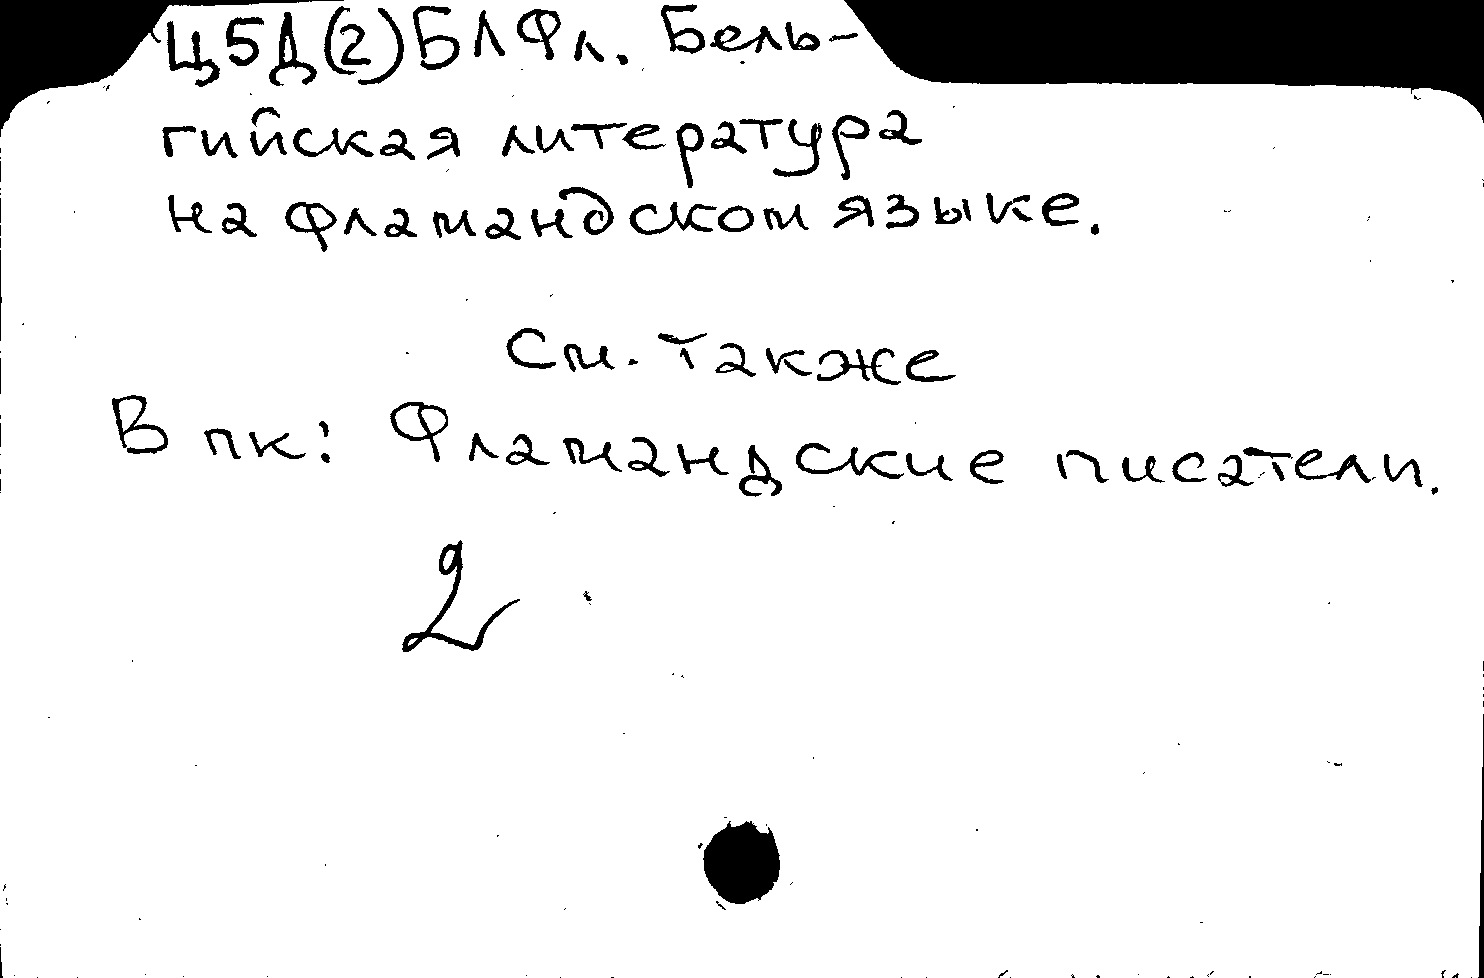 Ц5Д(2)БЛФл. Бель-
гийская литература
на фламандском языке.
См. также
В пк: Фламандские писатели.
2